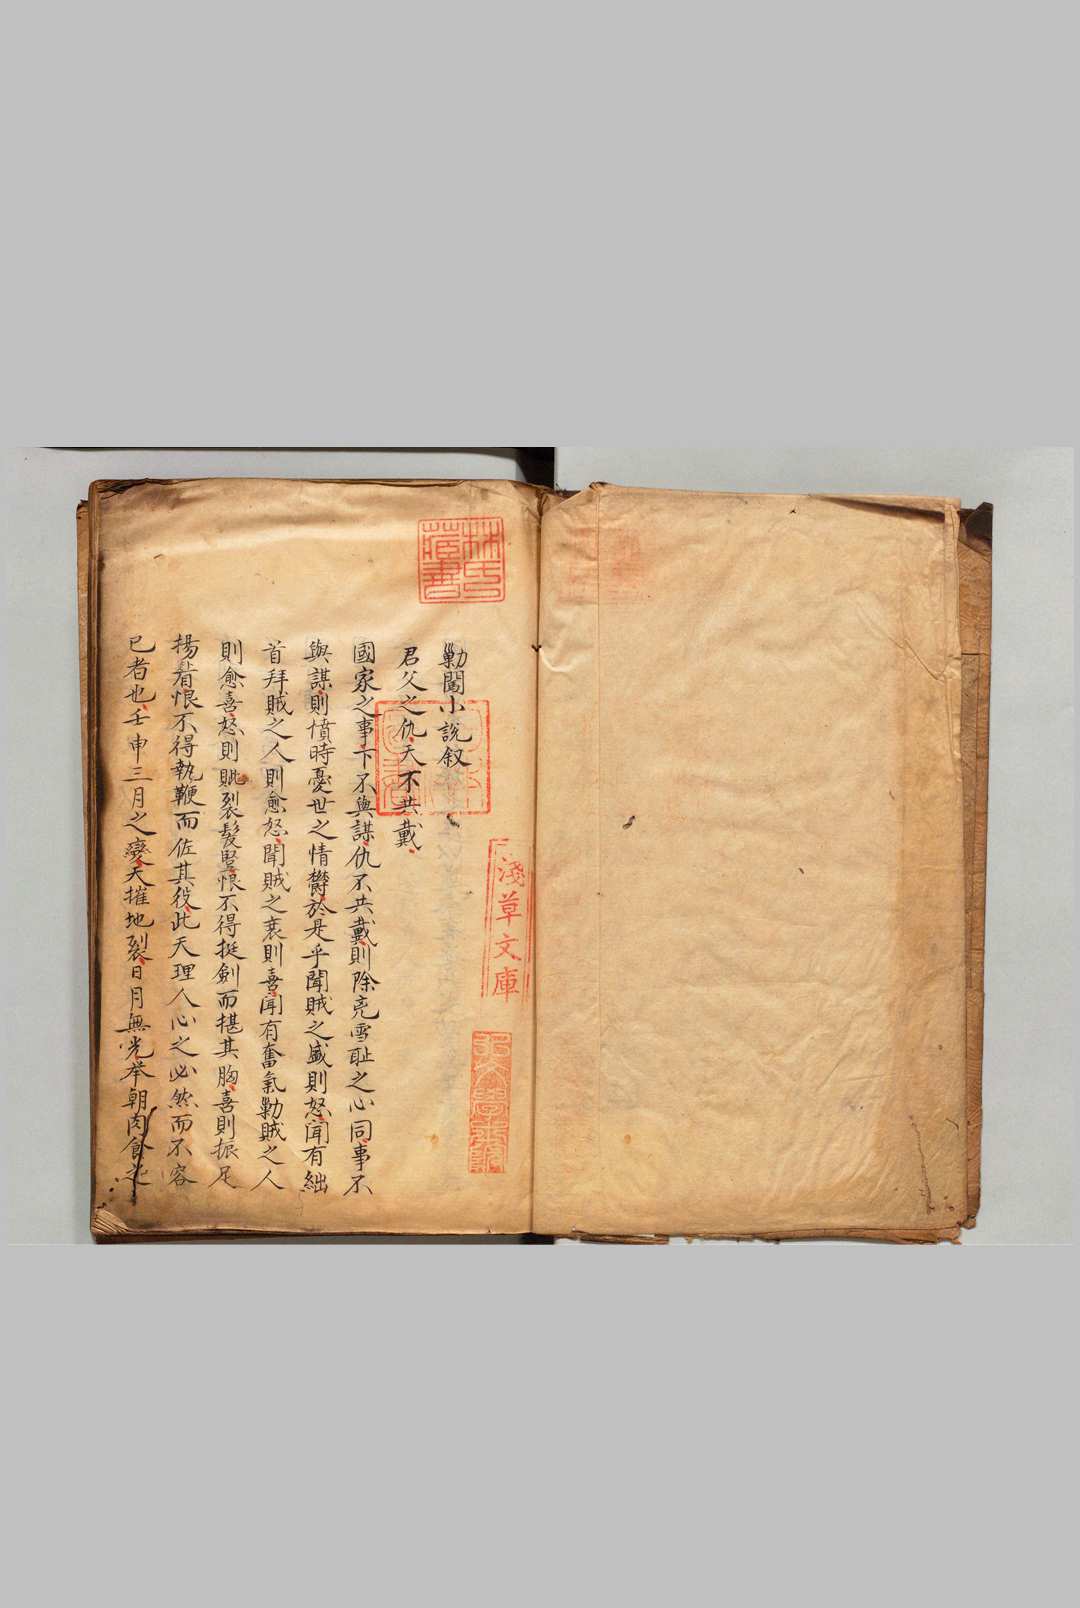 勦闖小說叙
君父之仇天不共戴
國家之事下不與謀仇不共戴則除兇雪耻之心同事不
與謀則憤時憂世之情欝於是乎聞賊之盛則怒聞有絀
首拜賊之人則愈怒聞賊之衰則喜聞有奮氣勦賊之人
則愈喜怒則眦裂髮豎恨不得挺劍而揕其胸喜則振足
揚眉恨不得執鞭而佐其役此天理人心之必然而不容
已者也壬申三月之變天摧地裂日月無光举朝肉食之
林氏藏書
淺草文庫